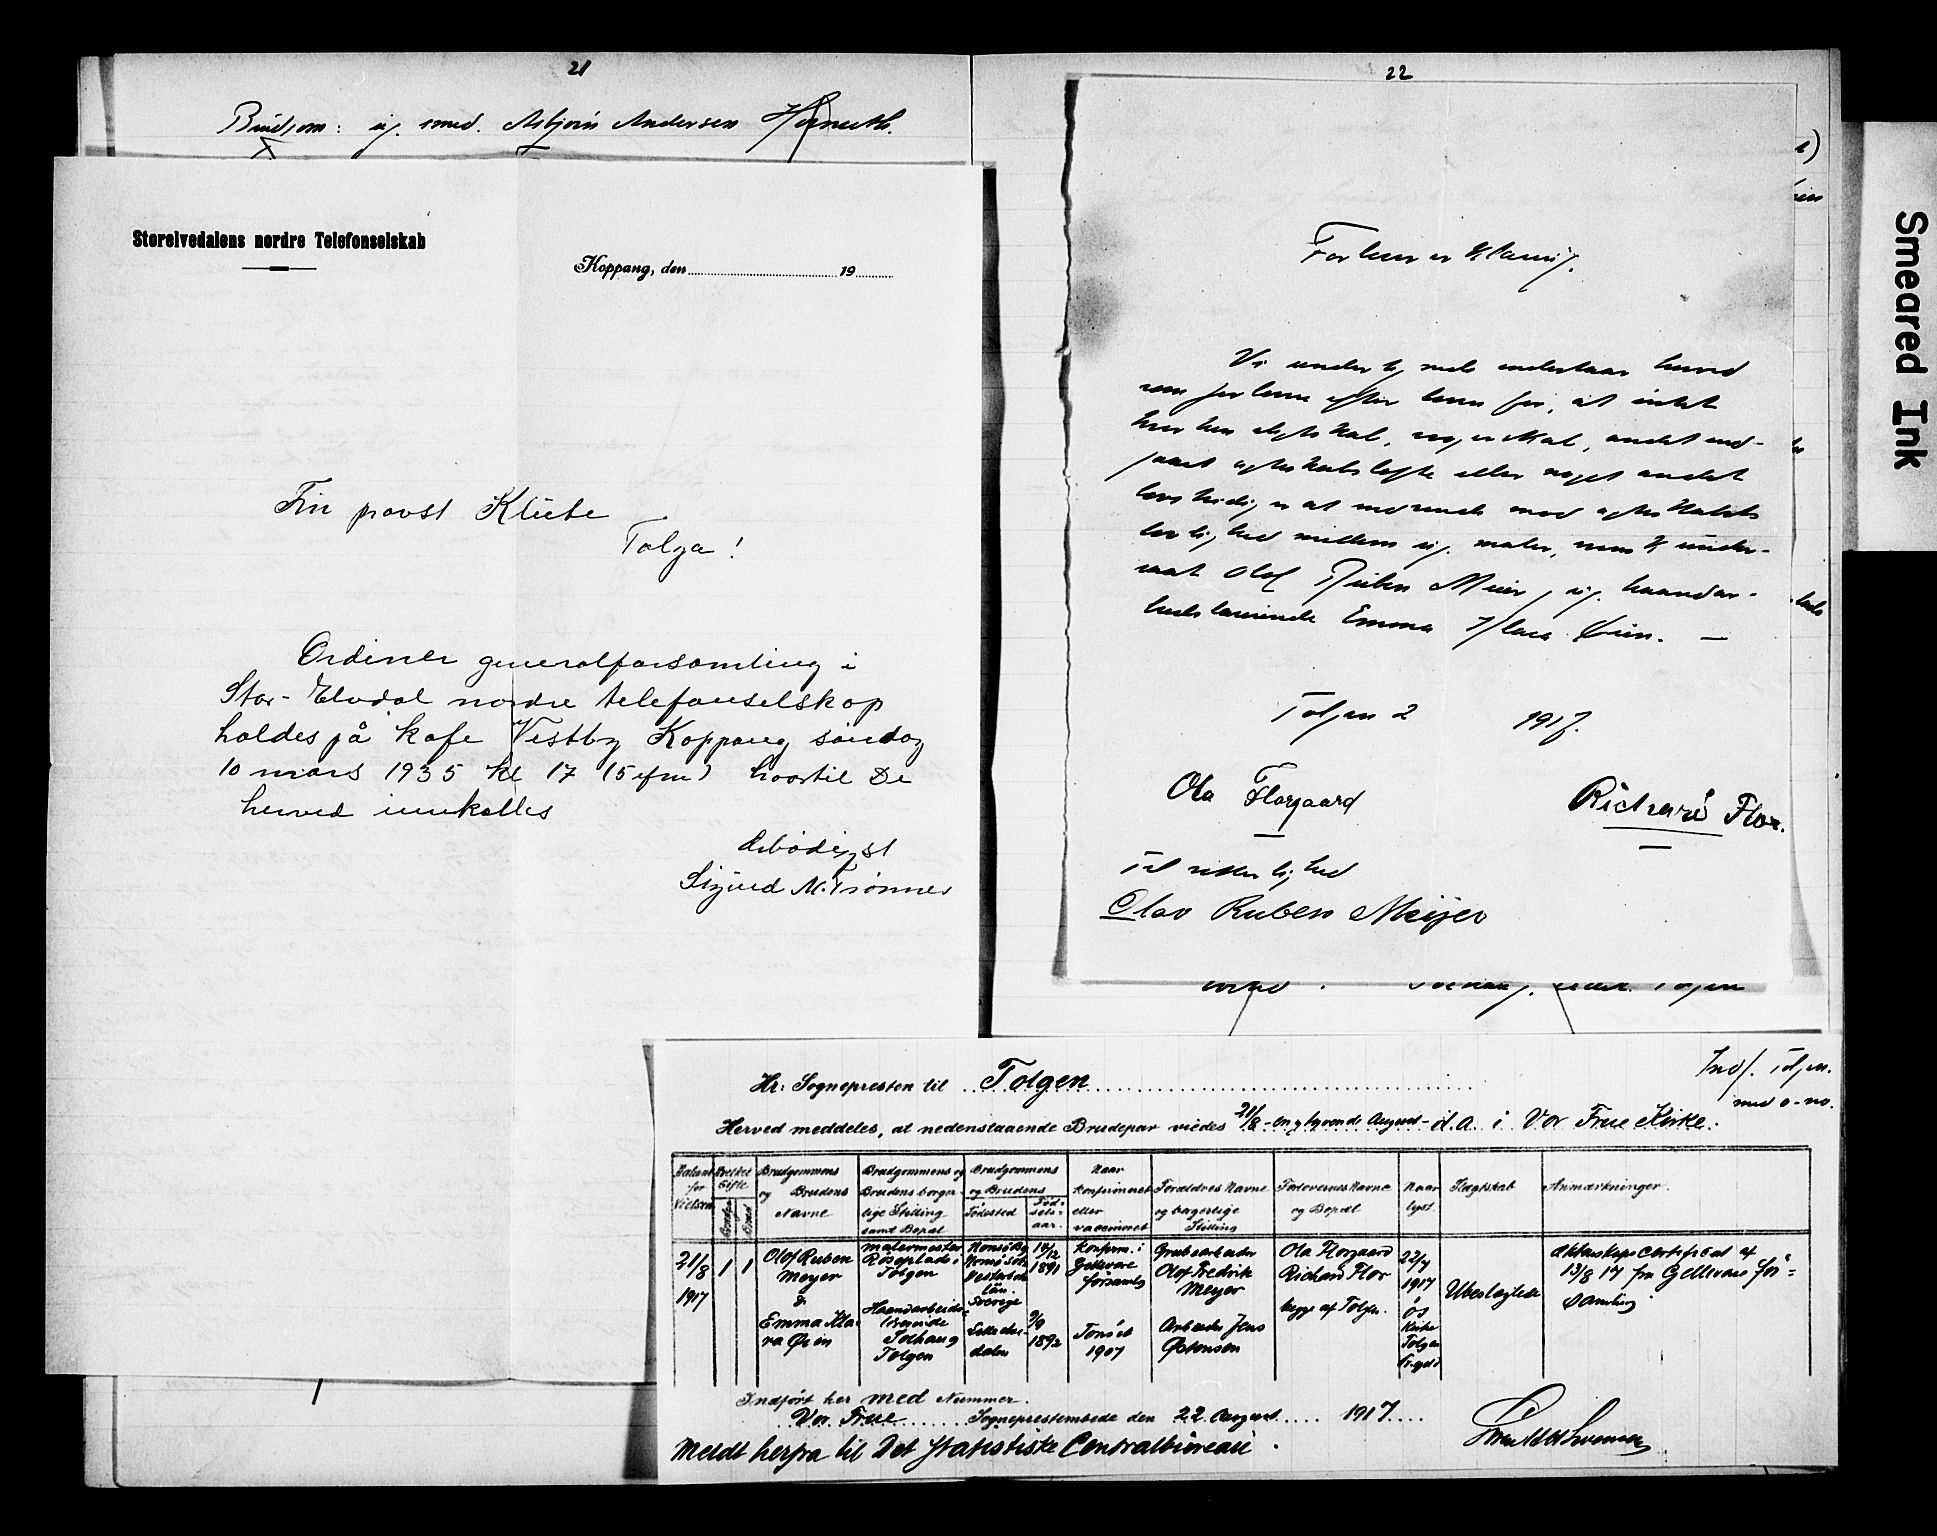 21
Brudgom: ug. smed. Asbjørn Andersen
Storelvedalens nordre Telefonselskab
Koppang, den 19
Tolga!
Ordinær generalforsamling i
Stor-Elvdal nordre telefonselskap
holdes på kafe Vestby Koppang søndag
10 mars 1935 kl 17 (5 efm) hvortil De
herved innkalles
Ærbødigst
Sigurd M. Trønnes
22
Forlovererklæring.
Vi undertegnede indestaar herved
som forlovere efter loven for, at intet
hverken slegtskab, svogerskab, andet ind-
gaaet egteskabsløfte eller noget andet
lovstridig er at indvende mod egteskabets
lovlighed mellem ug. maler, svensk under-
saat Olof Ruben Meier, ug. haandar-
beidslærerinde Emma Klara Øien. —
Tolgen 2 1917.
Ola Florgaard
Richard Flor.
Til vitterlighed
Olav Ruben Meijer
Tolgen
Hr: Sognepresten til Tolgen
Indf. Tolgen.
med o-no.
Herved meddeles, at nedenstaaende Brudepar viedes 21/8 - en og tyvende August - d.a. i Vor Frue Kirke.
Brudgommens og Brudens Navne
Brudgommens og Brudens borgerlige Stilling samt Bopæl
Brudgommens og Brudens
Fødested
Fødselsaar.
Naar konfirmeret eller vaccineret
Forældres Navne og borgerlige Stilling
Forlovernes Navne og Bopæl
Naar lyst
Slægtskab
Anmærkninger.
21/8 1917
1
1
Olof Ruben Meyer & Emma Klara Øien
malermester Tolgen
Haandarbeidslærerinde Tolgen
Sverige
14/12 1891
2/9 1892
Konfirm. i Gellivare församl.
Tonset 1907
Grubearbeider Olof Fredrik Meyer
Arbeider Jens Østensen
Ola Florgaard
Richard Flor
begge af Tolgen.
22/7 1917
Kirke Tolgen
Ubeslægtede
Äktenskapscertificat af 13/8 17 fra Gellivare församling
Indført her med Nummer.
Vor Frue Sogneprestembede den 22. August 1917
Meldt herfra til Det statistiske Centralbureau.
Smeared Ink